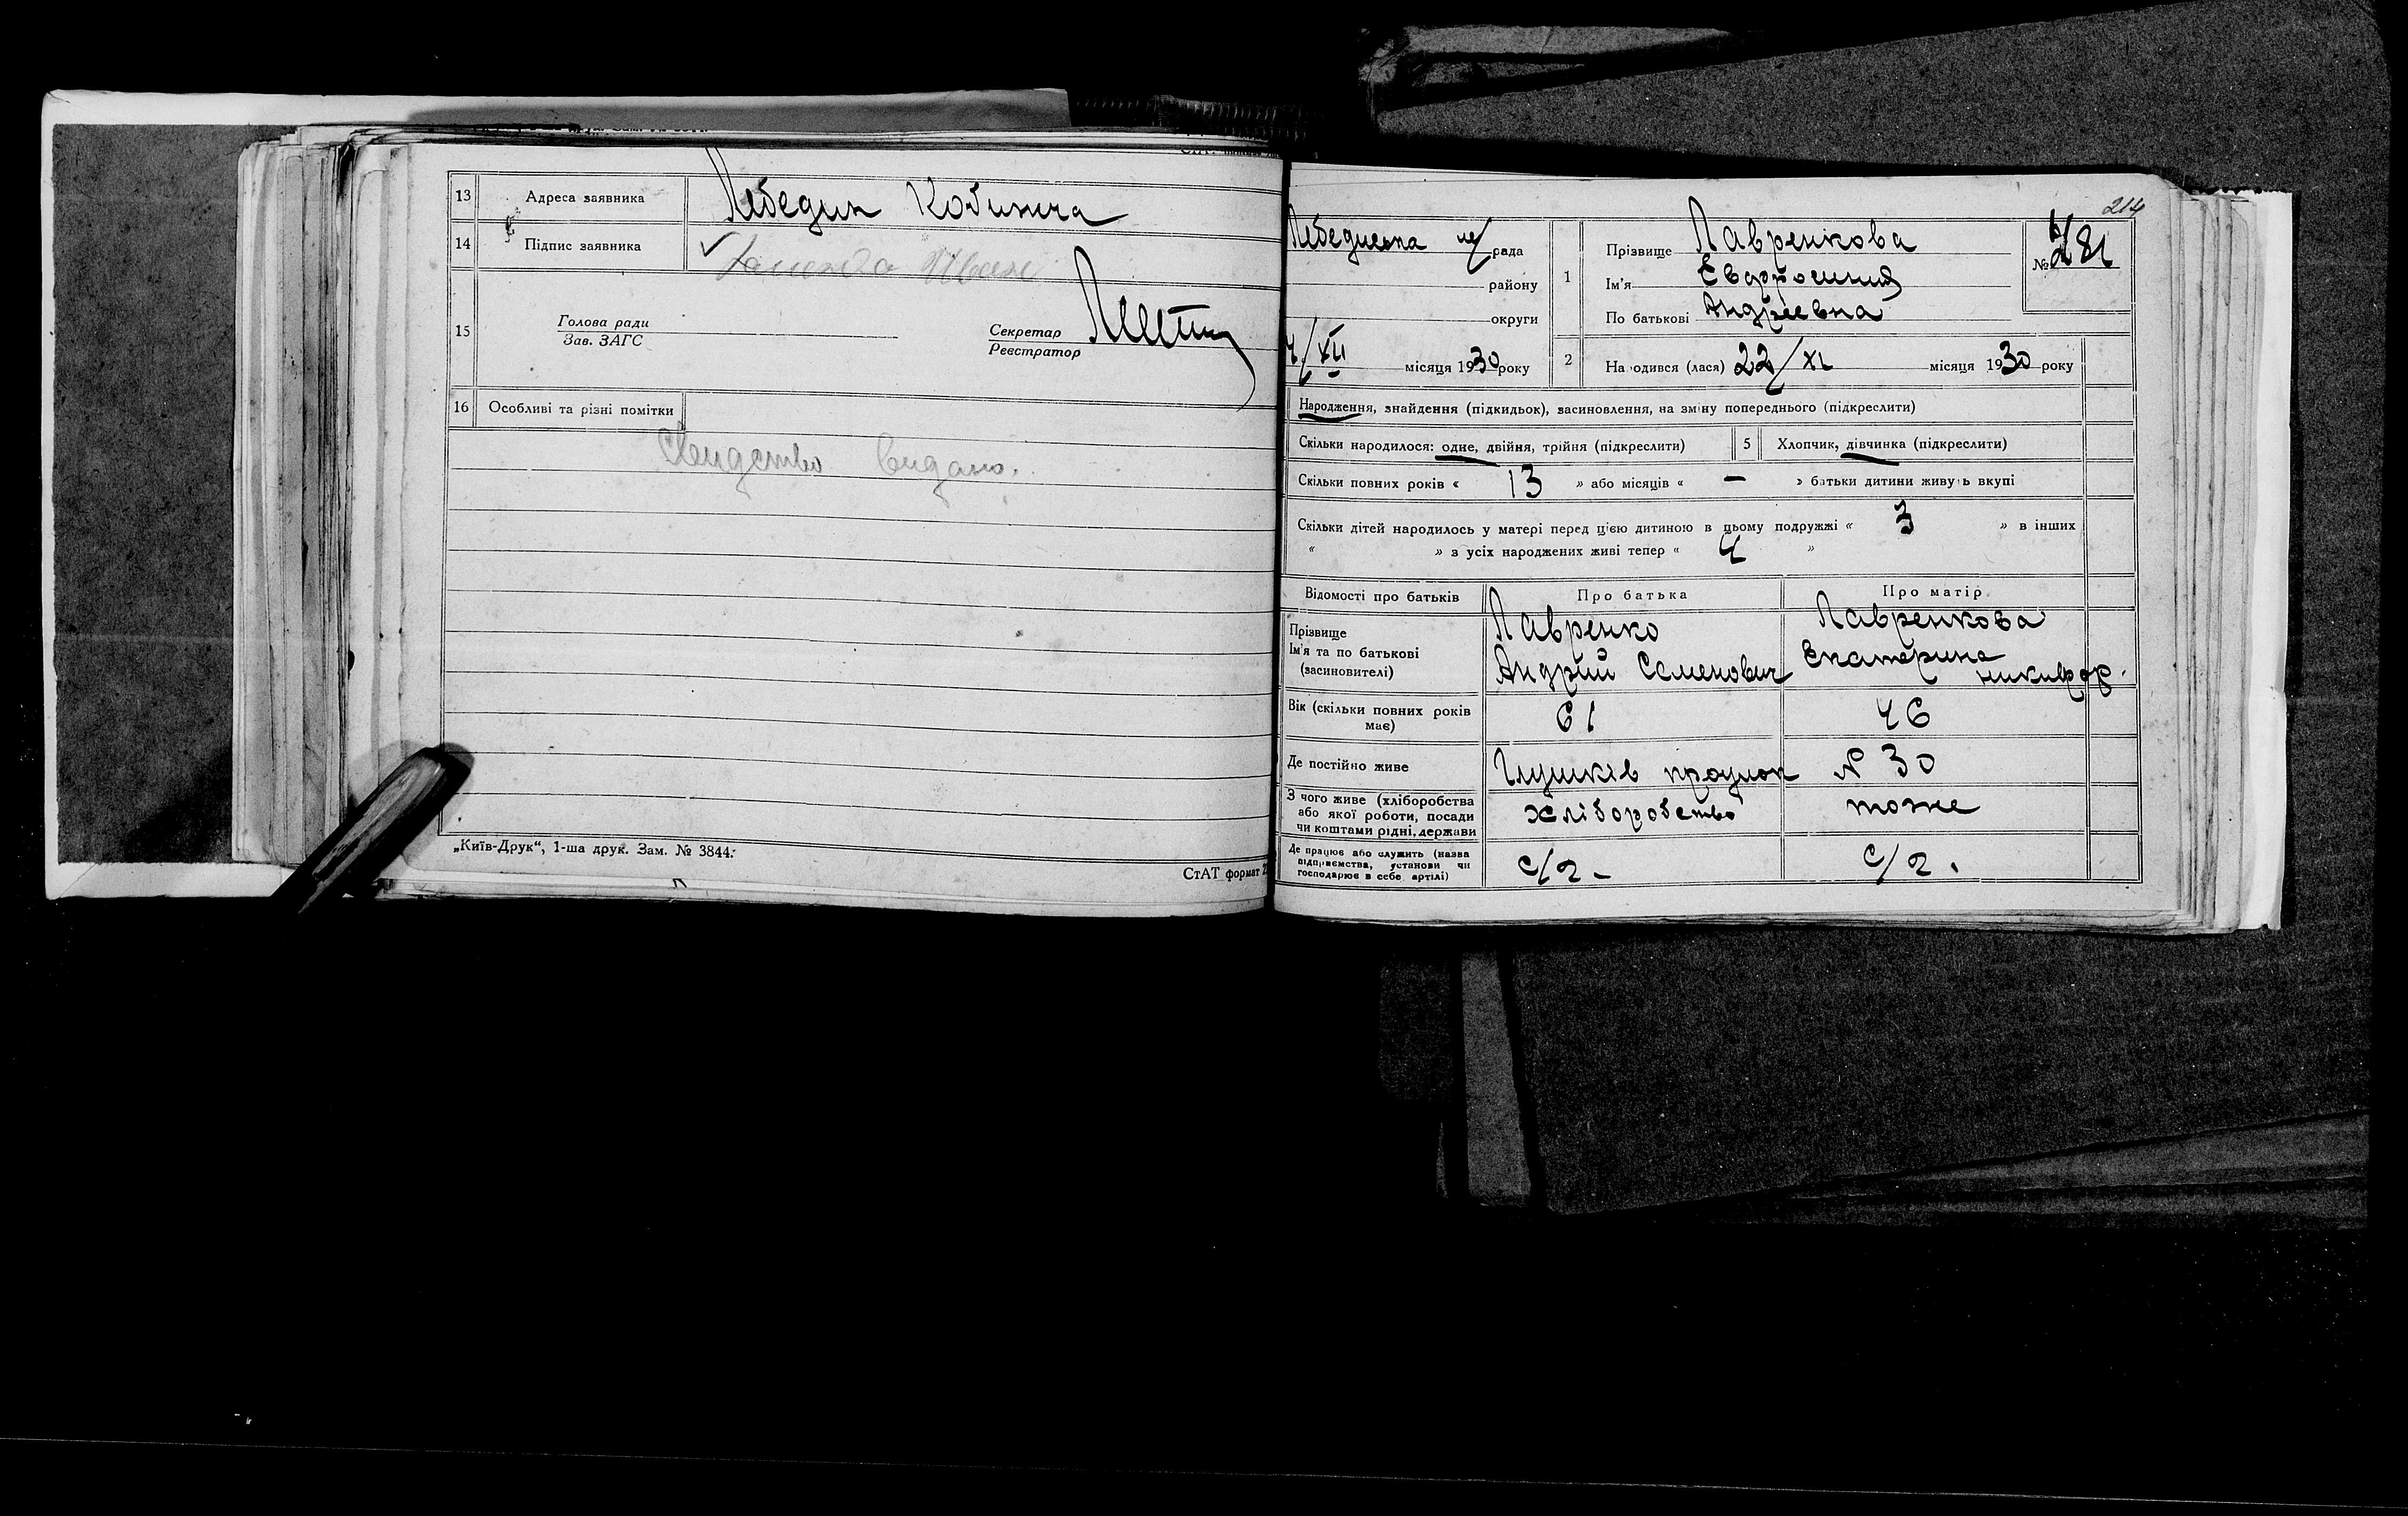 13 Адреса заявника Лебедин Кобижча
14 Підпис заявника Иван
15 Голова ради
Зав. ЗАГС
Секретар
Реєстратор
16 Особливі та різні помітки
Свидство видано.
„Київ-Друк“, 1-ша друк. Зам. № 3844.
СтАТ формат
214
Лебединська рада
району
округи
4/XII місяця 1930 року
1 Прізвище Лавренкова
Ім'я Евфросиния
По батькові Андріевна
№ 281
2 На одився (лася) 22/XI місяця 1930 року
Народження, знайдення (підкидьок), засиновлення, на зміну попереднього (підкреслити)
Скільки народилося: одне, двійня, трійня (підкреслити) 5 Хлопчик, дівчинка (підкреслити)
Скільки повних років « 13 » або місяців « — » батьки дитини живуть вкупі
Скільки дітей народилось у матері перед цією дитиною в цьому подружжі « 3 » в інших
« » з усіх народжених живі тепер « 4 »
Відомості про батьків Про батька Про матір
Прізвище
Ім'я та по батькові
(засиновителі)
Лавренко
Андрий Семенович
Лавренкова
Екатерина
никифор.
Вік (скільки повних років
має)
61 46
Де постійно живе № 30
З чого живе (хліборобства
або якої роботи, посади
чи коштами рідні, держави
хліборобство тоже
Де працює або служить (назва
підприємства, установи чи
господарює в себе артілі)
с/г - с/г.